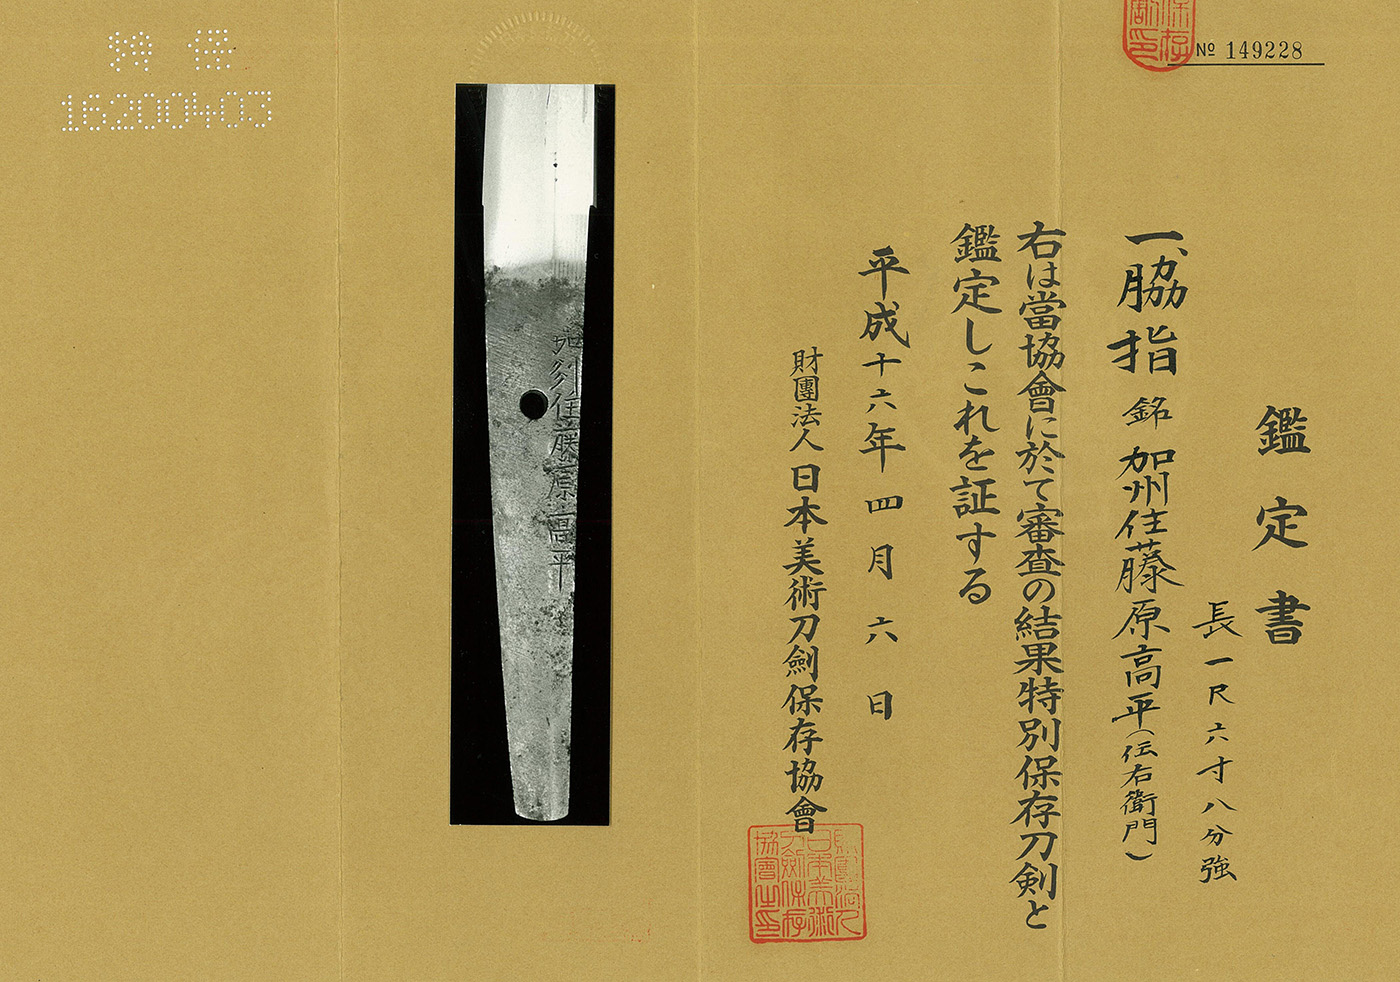 保存
割印
№ 149228
鑑定書
長一尺六寸八分強
一、脇指 銘 加州住藤原高平(伝右衛門)
右は當協會に於て審査の結果特別保存刀剣と
鑑定しこれを証する
平成十六年四月六日
財團法人日本美術刀劍保存協會
財團法人
日本美術
刀劍保存
協會之印
加州住藤原高平
特保
16200403